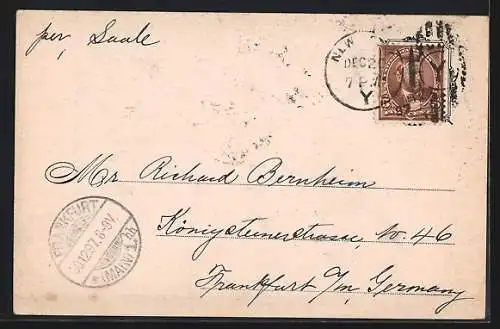 per, Saale
NEW
DEC 2
7 P
Y.
Mr Richard Bernheim
Königsteinerstrasse, no. 46
Frankfurt a/m, Germany
FRANKFURT
12.97.6-8N.
(MAIN) 1.